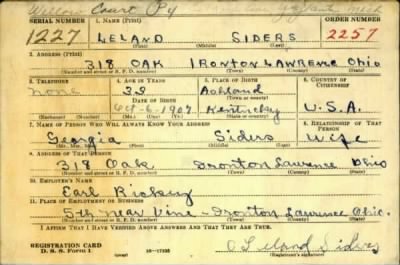 Willow Court Py
SERIAL NUMBER 1. NAME (Print) ORDER NUMBER
1227 LELAND SIDERS 2257
(First) (Middle) (Last)
2. ADDRESS (Print)
318 OAK IRONTON LAWRENCE Ohio
(Number and street or R. F. D. number) (Town) (County) (State)
3. TELEPHONE 4. AGE IN YEARS 5. PLACE OF BIRTH 6. COUNTRY OF CITIZENSHIP
None 32 Ashland
DATE OF BIRTH (Town or county)
Oct-6-1907 Kentucky U.S.A.
(Exchange) (No.) (Mo.) (Day) (Yr.) (State or country)
7. NAME OF PERSON WHO WILL ALWAYS KNOW YOUR ADDRESS 8. RELATIONSHIP OF THAT PERSON
Georgia Siders Wife
(Mr., Mrs., Miss) (First) (Middle) (Last)
9. ADDRESS OF THAT PERSON
318 Oak Ironton Lawrence Ohio
(Number and street or R. F. D. number) (Town) (County) (State)
10. EMPLOYER'S NAME
Earl
11. PLACE OF EMPLOYMENT OR BUSINESS
5th near Vine - Ironton Lawrence Ohio.
(Number and street or R. F. D. number) (Town) (County) (State)
I AFFIRM THAT I HAVE VERIFIED ABOVE ANSWERS AND THAT THEY ARE TRUE.
REGISTRATION CARD
D. S. S. Form 1 16-17105 (Registrant's signature)
Leland Siders